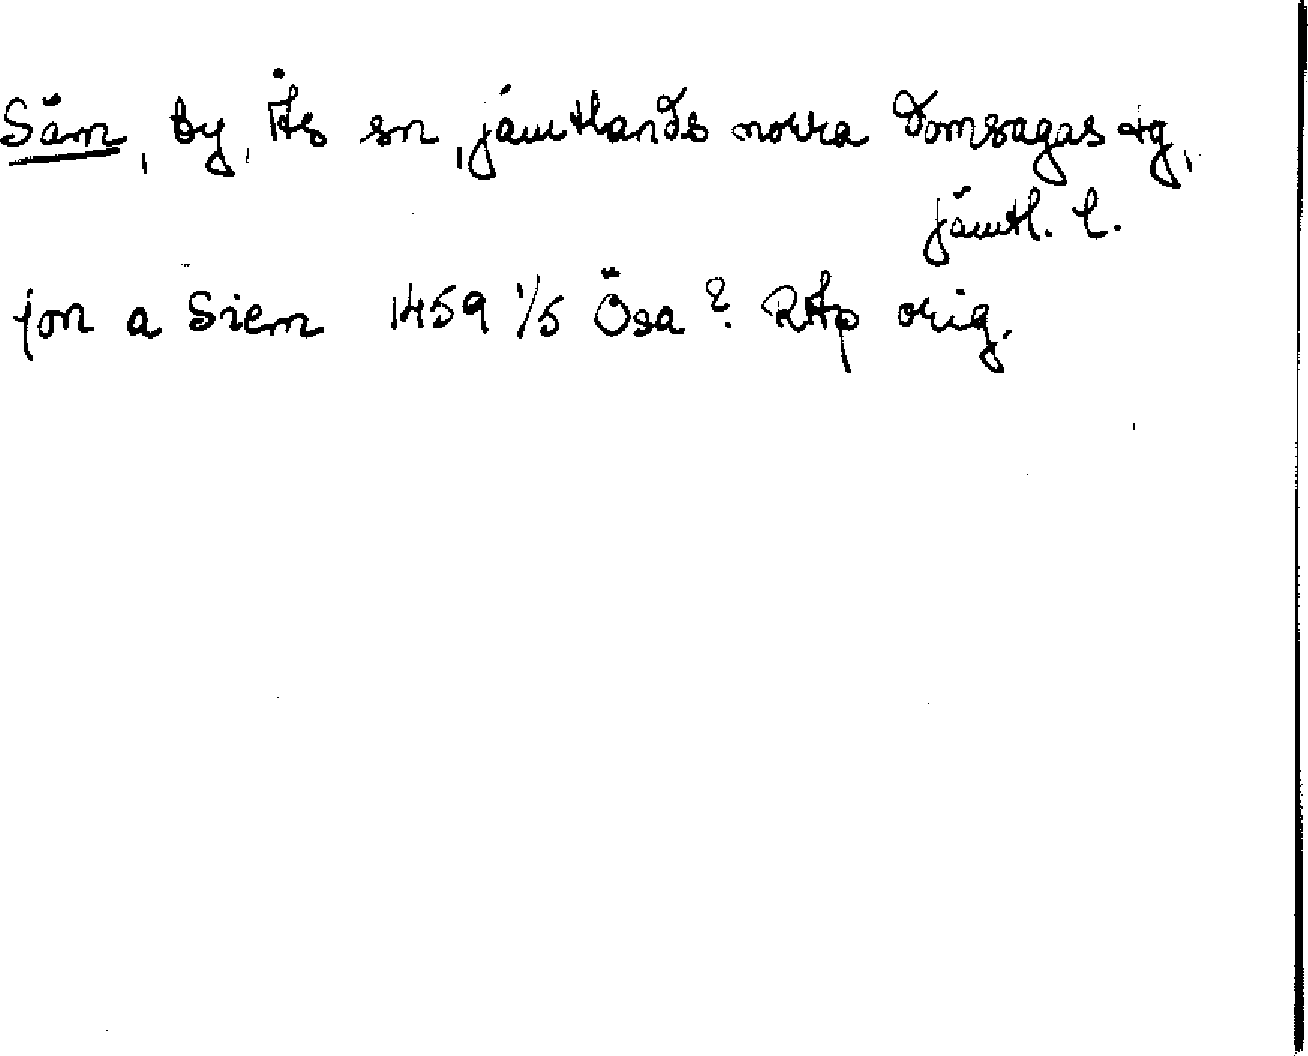 Säm, by, Ås sn, Jämtlands norra domsagas tg,
Jämtl. l.
jon a Siem 1459 1/5 Ösa? RAp orig.